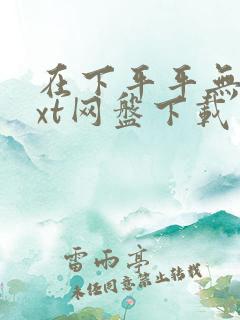 在下平平無
xt网盘下载
雷雨亭
未经同意禁止转载